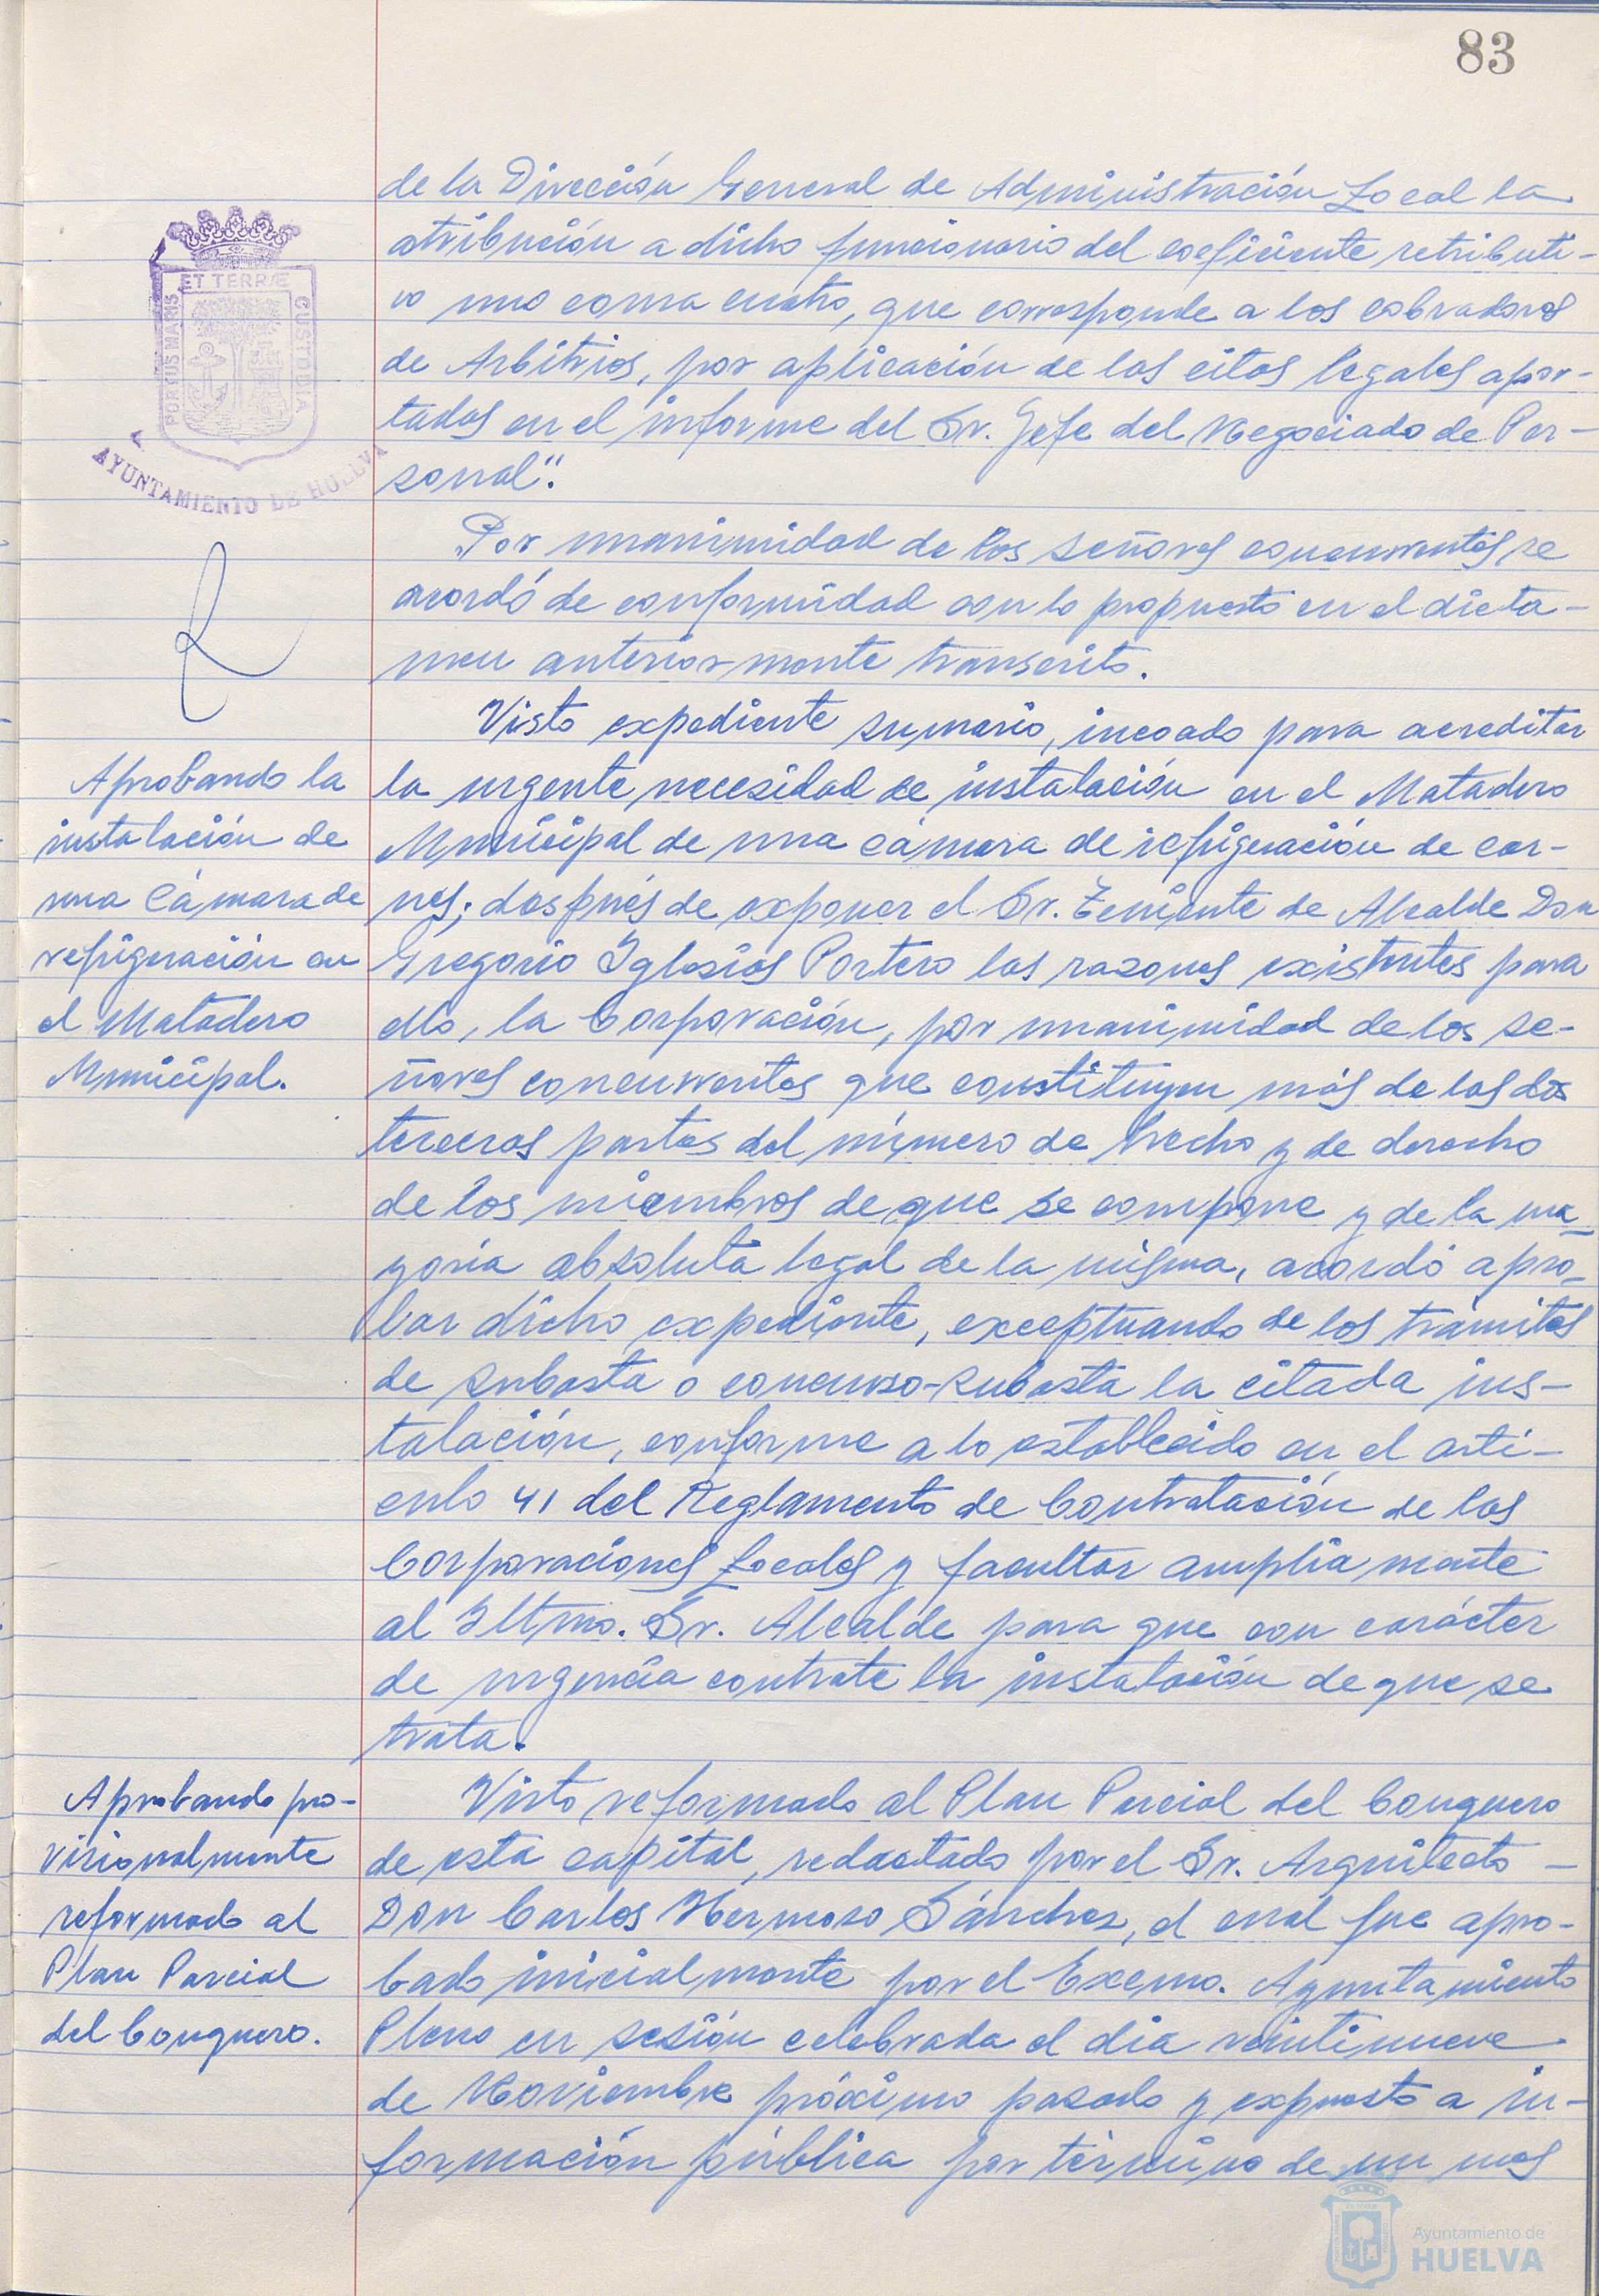 83
de la Dirección General de Administración Local la
atribución a dicho funcionario del coeficiente retributi-
vo uno coma cuatro, que corresponde a los cobradores
de Arbitrios, por aplicación de las citas legales apor-
tadas en el informe del Sr. Jefe del Negociado de Per-
sonal".
PORTUS MARIS
ET TERRÆ
CUSTODIA
AYUNTAMIENTO DE HUELVA
Por unanimidad de los señores concurrentes se
acordó de conformidad con lo propuesto en el dicta-
men anteriormente transcrito.
Aprobando la
instalación de
una Cámara de
refrigeración en
el Matadero
Municipal.
Visto expediente sumario, incoado para acreditar
la urgente necesidad de instalación en el Matadero
Municipal de una cámara de refrigeración de car-
nes; después de exponer el Sr. Teniente de Alcalde Don
Gregorio Iglesias Portero las razones existentes para
ello, la Corporación, por unanimidad de los se-
ñores concurrentes que constituyen más de las dos
terceras partes del número de hecho y de derecho
de los miembros de que se compone y de la ma-
yoría absoluta legal de la misma, acordó apro-
bar dicho expediente, exceptuando de los trámites
de subasta o concurso-subasta la citada ins-
talación, conforme a lo establecido en el artí-
culo 41 del Reglamento de Contratación de las
Corporaciones Locales y facultar ampliamente
al Iltmo. Sr. Alcalde para que con carácter
de urgencia contrate la instalación de que se
trata.
Aprobando pro-
visionalmente
reformado al
Plan Parcial
del Conquero.
Visto reformado al Plan Parcial del Conquero
de esta capital, redactado por el Sr. Arquitecto -
Don Carlos Hermoso Sánchez, el cual fue apro-
bado inicialmente por el Excmo. Ayuntamiento
Pleno en sesión celebrada el día veintinueve
de Noviembre próximo pasado y expuesto a in-
formación pública por término de un mes
Ayuntamiento de
HUELVA